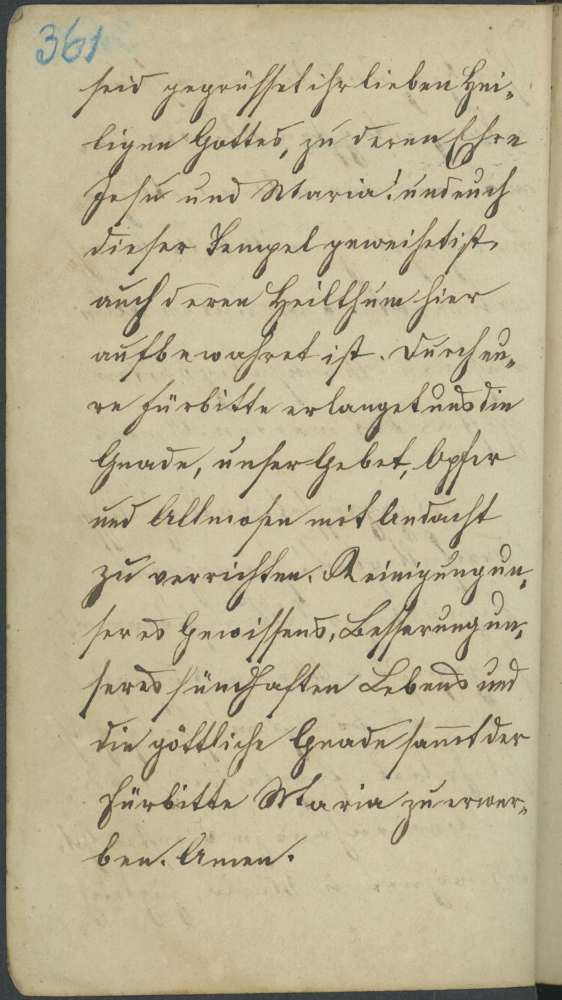 361
seid gegrüsset ihr lieben Hei„
ligen Gottes, zu deren Ehre
Jesu und Maria! und euch
dieser Tempel geweihet ist,
auch deren Heilthum hier
aufbewahret ist. Durch eu„
re Fürbitte erlanget uns die
Gnade, unser Gebet, Opfer
und Allmosen mit Andacht
zu verrichten. Reinigung un„
seres Gewissens, Besserung un„
seres sündhaften Lebens und
die göttliche Gnade sam̅t der
Fürbitte Maria zu erwer„
ben. Amen.